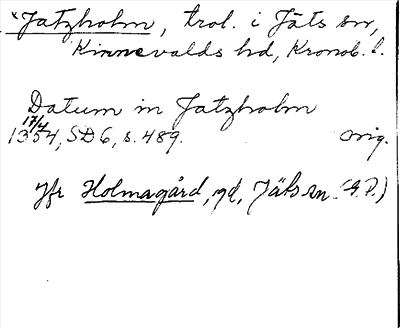 *Jatzholm, trol. i Jäts sn,
Kinnevalds hd, Kronob. l.
Datum in Jatzholm
17/4
1354, SD6, s. 489. orig.
Jfr Holmagård, gd, Jäts sn. (G.P.)